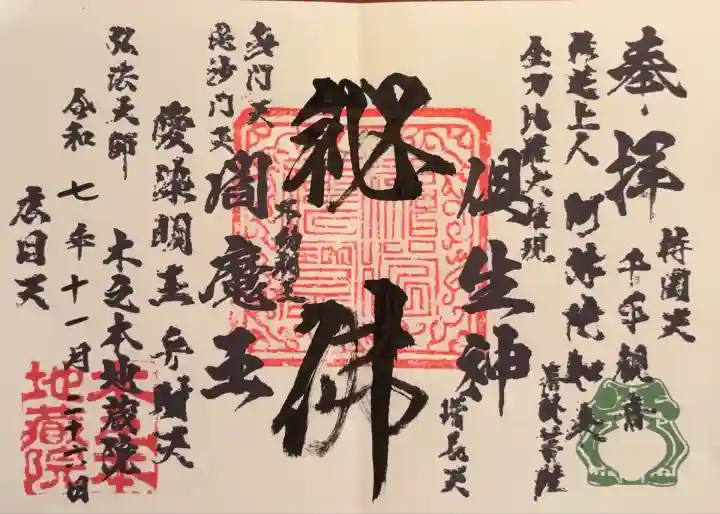 奉拝
持國天
千手観音
阿弥陀如来
菩薩
上人
金刀比羅大権現
倶生神
増長天
秘佛
不動明王
閻魔王
多門天
毘沙門天
愛染明王
弁財天
弘法大師
木之本地蔵院
令和七年十一月二十六日
広目天
木之本
地蔵院